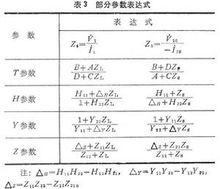 表3 部分参数表达式
参数
表达式
Z₁= V̇₁/İ₁
T参数
B+AZL/D+CZL
B+DZS/A+CZS
H参数
H₁₁+△HZL/1+H₂₂ZL
H₁₁+ZS/△H+H₂₂ZS
Y参数
1+Y₂₂ZL/Y₁₁+△YZL
1+Y₁₁ZS/Y₂₂+△YZS
Z参数
△Z+Z₁₁ZL/Z₂₂+ZL
△Z+Z₂₂ZS/Z₁₁+ZS
注：△H=H₁₁H₂₂-H₁₂H₂₁，△Y=Y₁₁Y₂₂-Y₁₂Y₂₁，
△Z=Z₁₁Z₂₂-Z₁₂Z₂₁